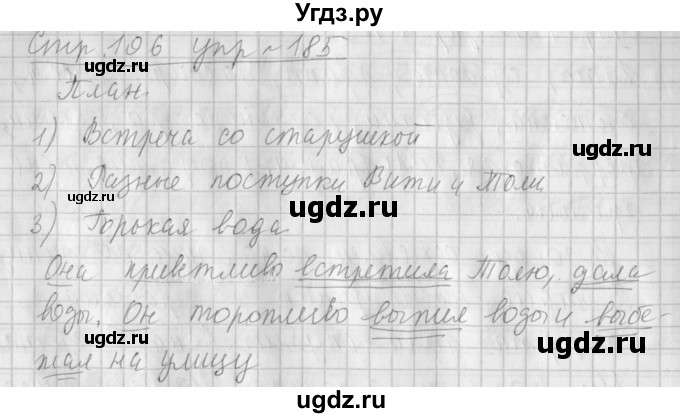 Угдз.ру
Стр. 106 упр ~ 185
План.
1) Встреча со старушкой
2) Разные поступки Вити и Толи
3) Горькая вода
Она приветливо встретила Толю, дала
воды. Он торопливо выпил воды и выбе-
жал на улицу
ugdz.ru
ugdz.ru
ugdz.ru
ugdz.ru
ugdz.ru
ugdz.ru
ugdz.ru
ugdz.ru
ugdz.ru
ugdz.ru
ugdz.ru
ugdz.ru
ugdz.ru